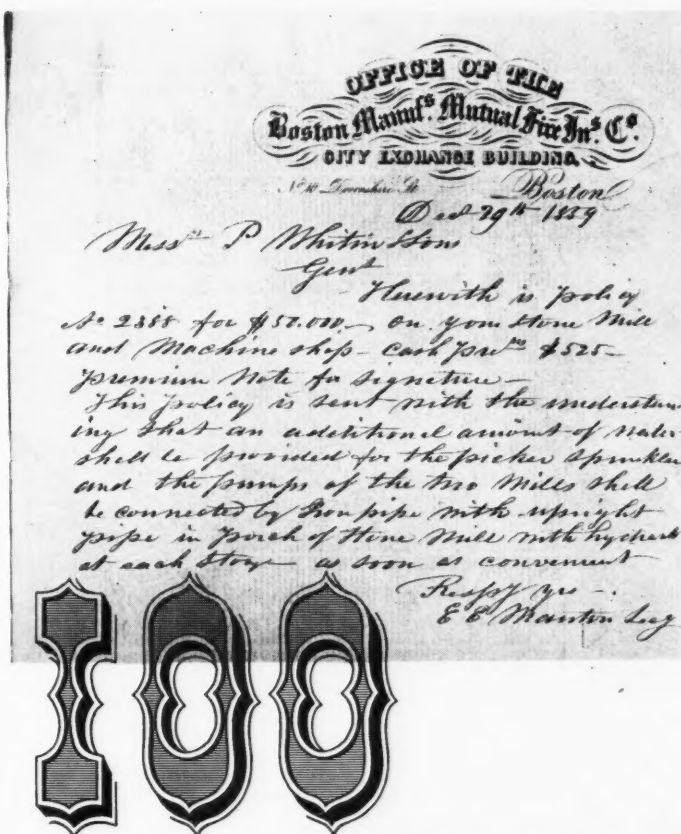 OFFICE OF THE
Boston Manufs. Mutual Fire Ins. Co.
CITY EXCHANGE BUILDING,
No 10 Devonshire St Boston
Dec 29th 1859
Messrs P Whitin & Sons
Gents
Herewith is policy
No 2388 for $50.000 – on your Stone Mill
and Machine shop – Cash Prem $525 –
Premium Note for signature –
This policy is sent with the understand
ing that an additional amount of water
shall be provided for the picker sprinkler
and the pumps of the two Mills shall
be connected by Iron pipe with upright
pipe in Porch of Stone Mill with hydrant
at each Story as soon as convenient
Respy yrs –
E E Manton Secy
100